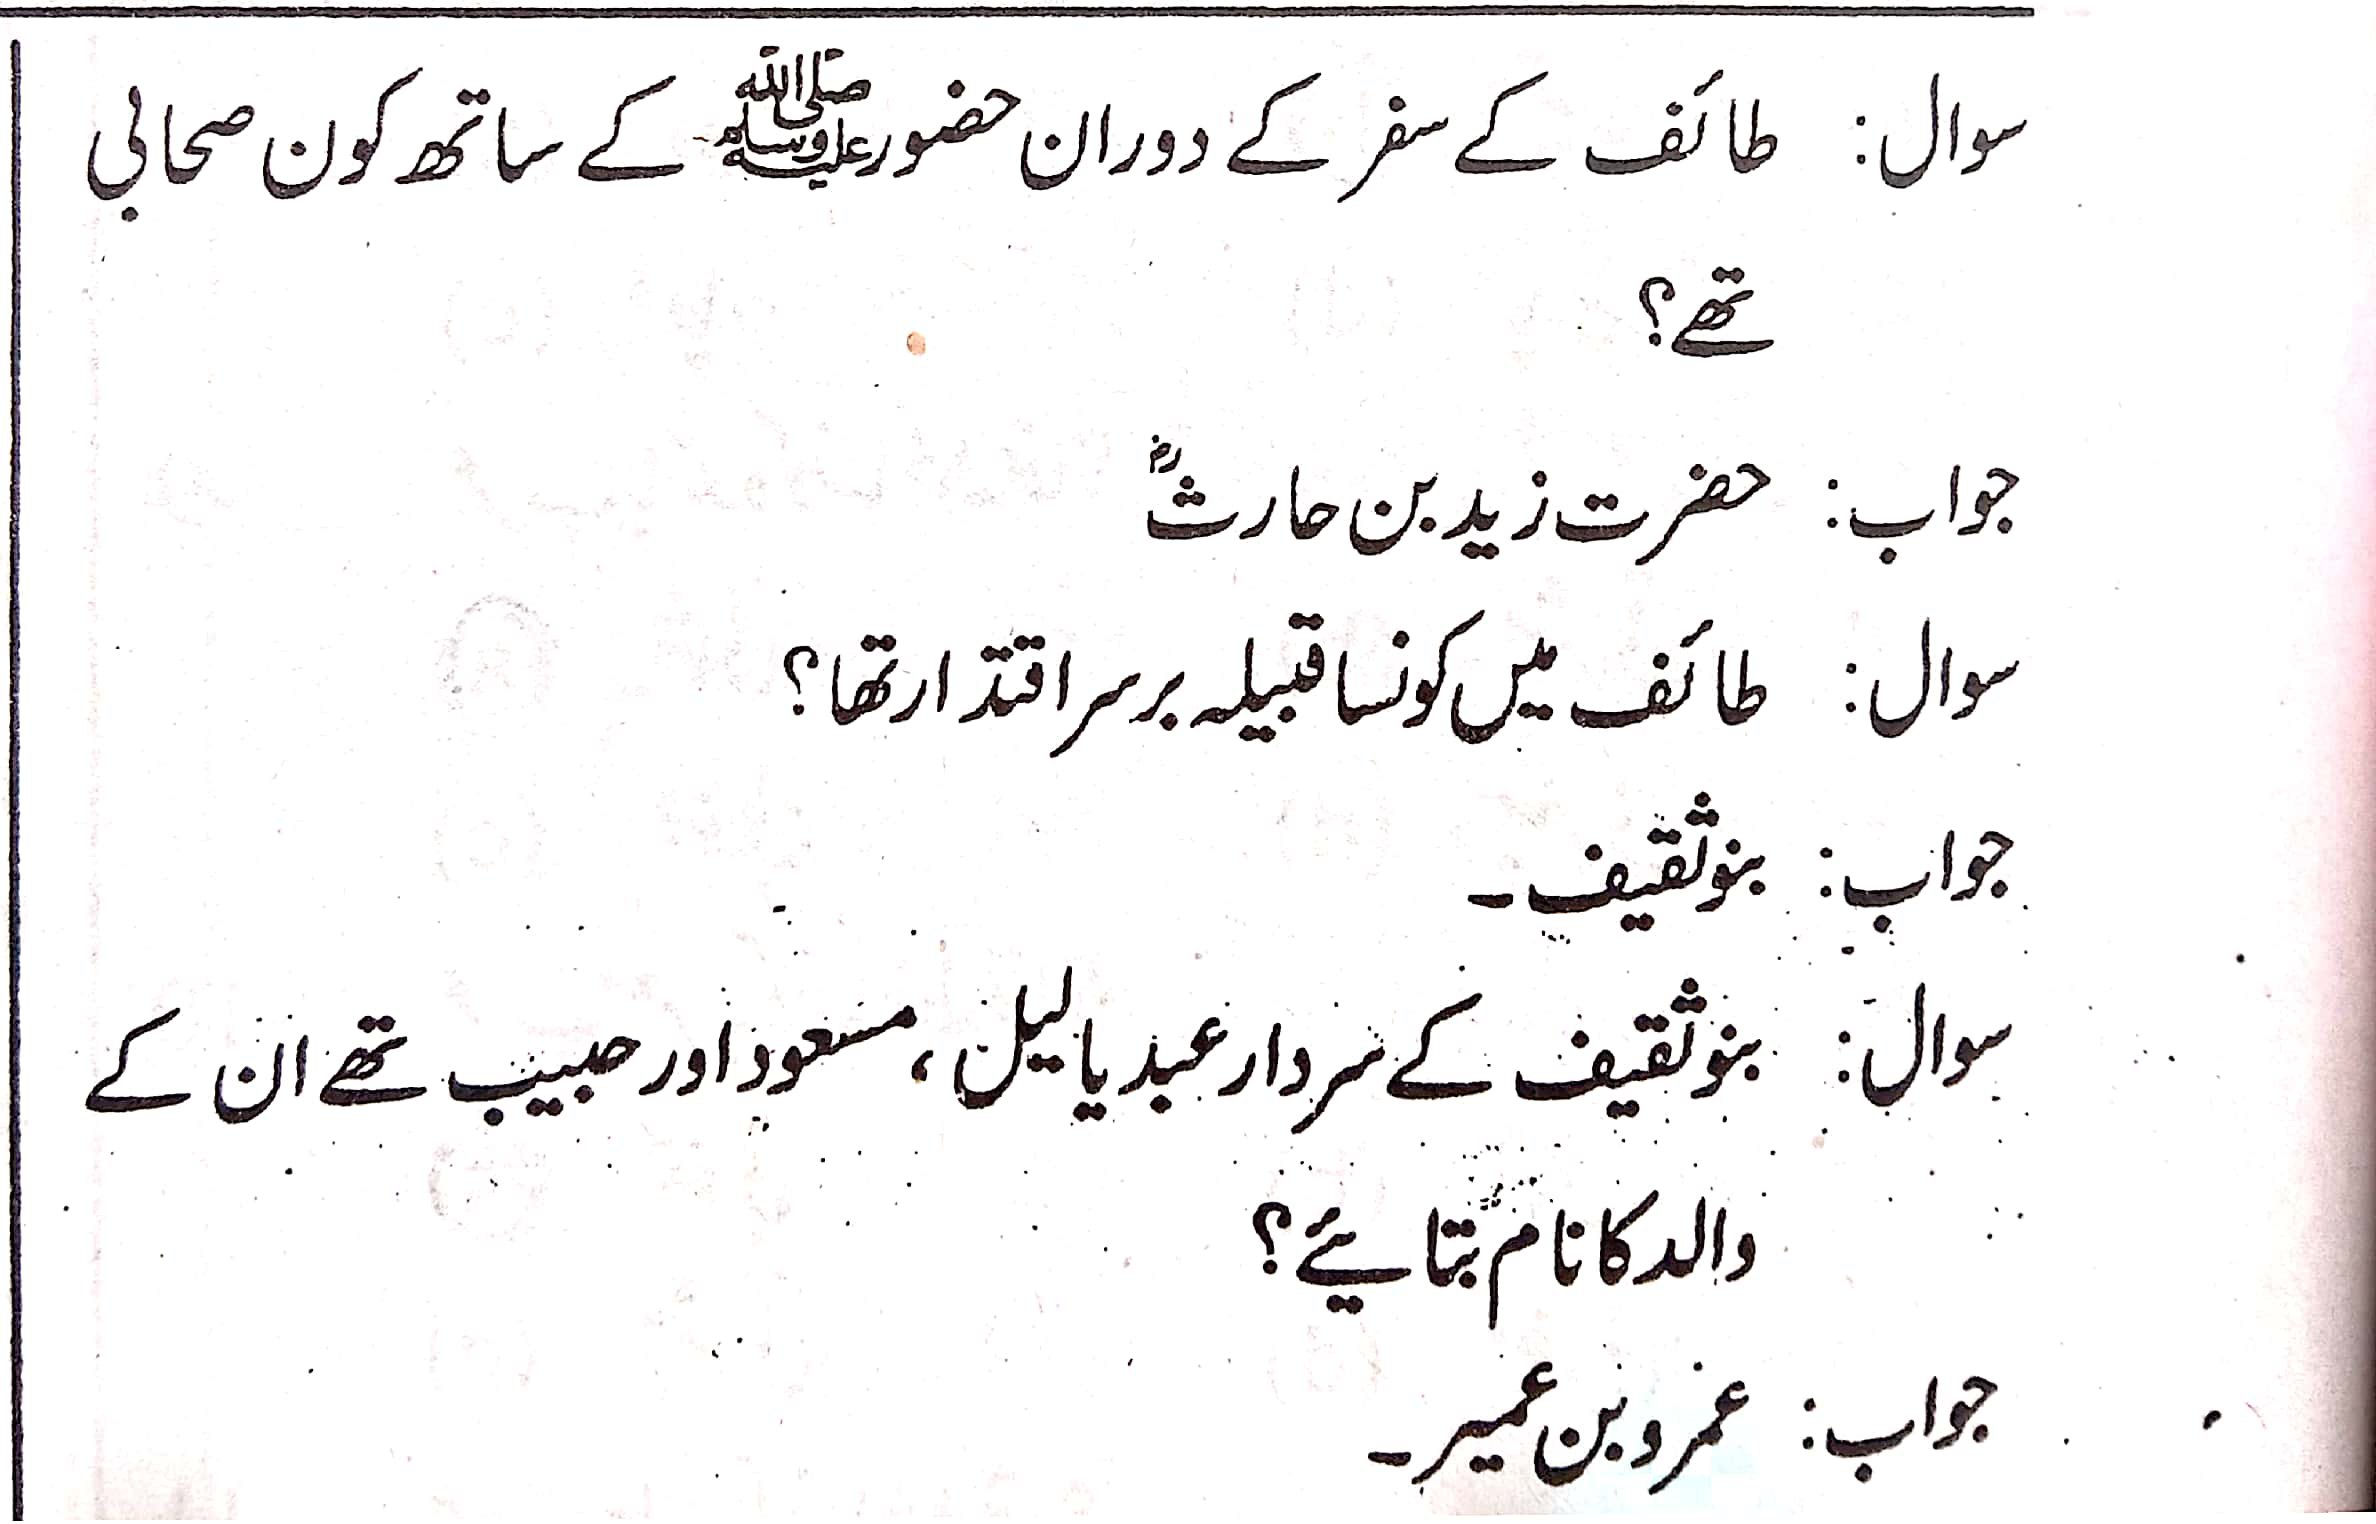 سوال: طائف کے سفر کے دوران حضور ﷺ کے ساتھ کون صحابی
تھے؟
جواب: حضرت زید بن حارثؓ
سوال: طائف میں کونسا قبیلہ برسراقتدار تھا؟
جواب: بنو ثقیف۔
سوال: بنو ثقیف کے سردار عبد یا لیل، مسعود اور حبیب تھے ان کے
والد کا نام بتایئے؟
جواب: عمرو بن عمیر۔